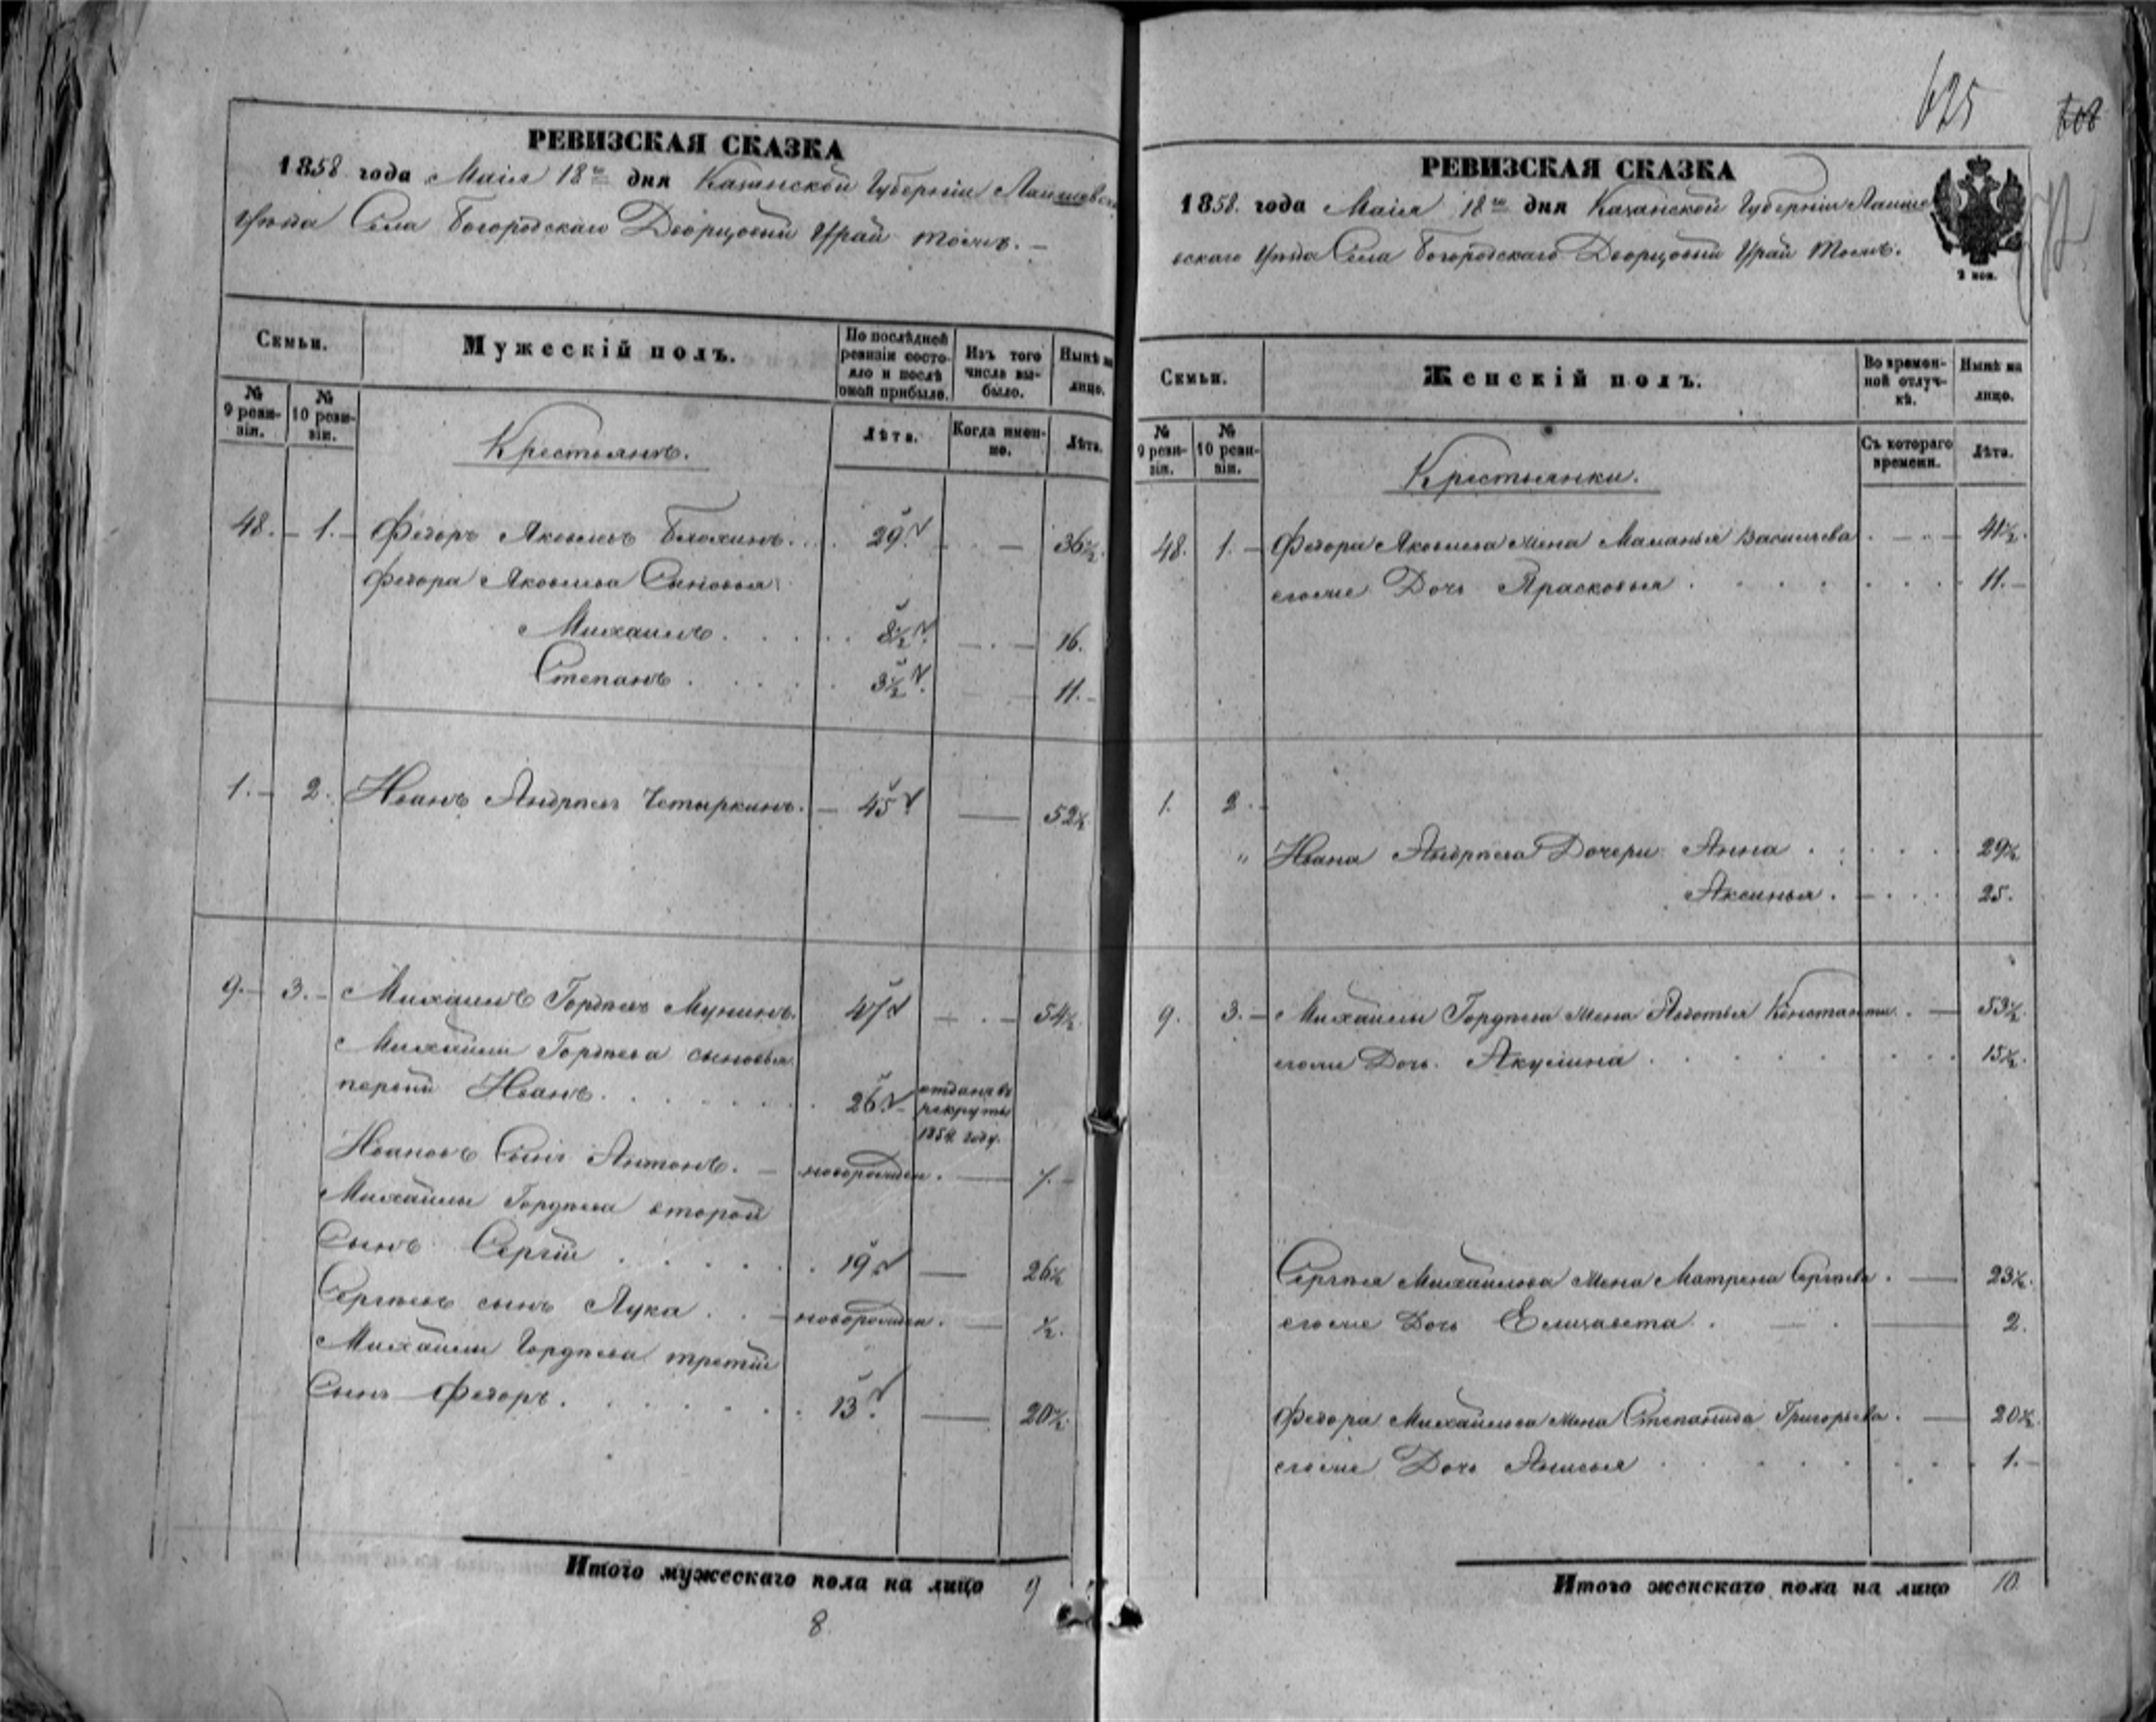 РЕВИЗСКАЯ СКАЗКА
1858 года Маія 18го дня Казанской Губерніи Лаишевска
Уѣзда Села Богородскаго Дворцовый Урай тожъ. —
Семьи.
Мужескій полъ.
По послѣдней ревизіи состояло и послѣ оной прибыло.
Изъ того числа выбыло.
Нынѣ на лицо.
№ 9 ревизіи.
№ 10 ревизіи.
Крестьянъ.
Лѣта.
Когда именно.
Лѣта.
48. — 1. — Федоръ Яковлевъ Блохинъ. 29. — 36½.
Федора Яковлева Сыновья
Михаилъ. 8½. — 16.
Степанъ. 3½. — 11. —
1. — 2. Иванъ Андрѣевъ Четыркинъ. — 45 — 52½
9. — 3. — Михаилъ Гордѣевъ Мунинъ. 47 — 54½
Михайлы Гордѣева сыновья
первый Иванъ. 26. отданъ въ рекруты 1854 году.
Ивановъ Сынъ Антонъ. — новорожден. — 7. —
Михайлы Гордѣева второй
Сынъ Сергій 19 — 26½
Сергѣевъ сынъ Лука. — новорожден. — ½.
Михайлы Гордѣева третій
Сынъ Федоръ. 13. — 20½.
Итого мужескаго пола на лицо 9
8
625
РЕВИЗСКАЯ СКАЗКА
1858. года Маія 18го дня Казанской Губерніи Лаише
вскаго Уѣзда Села Богородскаго Дворцовый Урай тожъ.
2 коп.
Семьи.
Женскій полъ.
Во временной отлучкѣ.
Нынѣ на лицо.
№ 9 ревизіи.
№ 10 ревизіи.
Крестьянки.
Съ котораго времени.
Лѣта.
48. 1. — Федора Яковлева жена Маланья Васильева — 41½.
егоже Дочь Прасковья 11. —
1. 2. —
" Ивана Андрѣева Дочери Анна 29½
Аксинья. — 25.
9. 3. — Михайлы Гордѣева жена Авдотья Константи. — 53½.
егоже Дочь. Акулина 15½.
Сергѣя Михайлова жена Матрена Сергѣева. — 23½.
егоже Дочь Елизавета. — 2.
Федора Михайлова жена Степанида Григорьева. — 20½.
егоже Дочь 1. —
Итого женскаго пола на лицо 10.